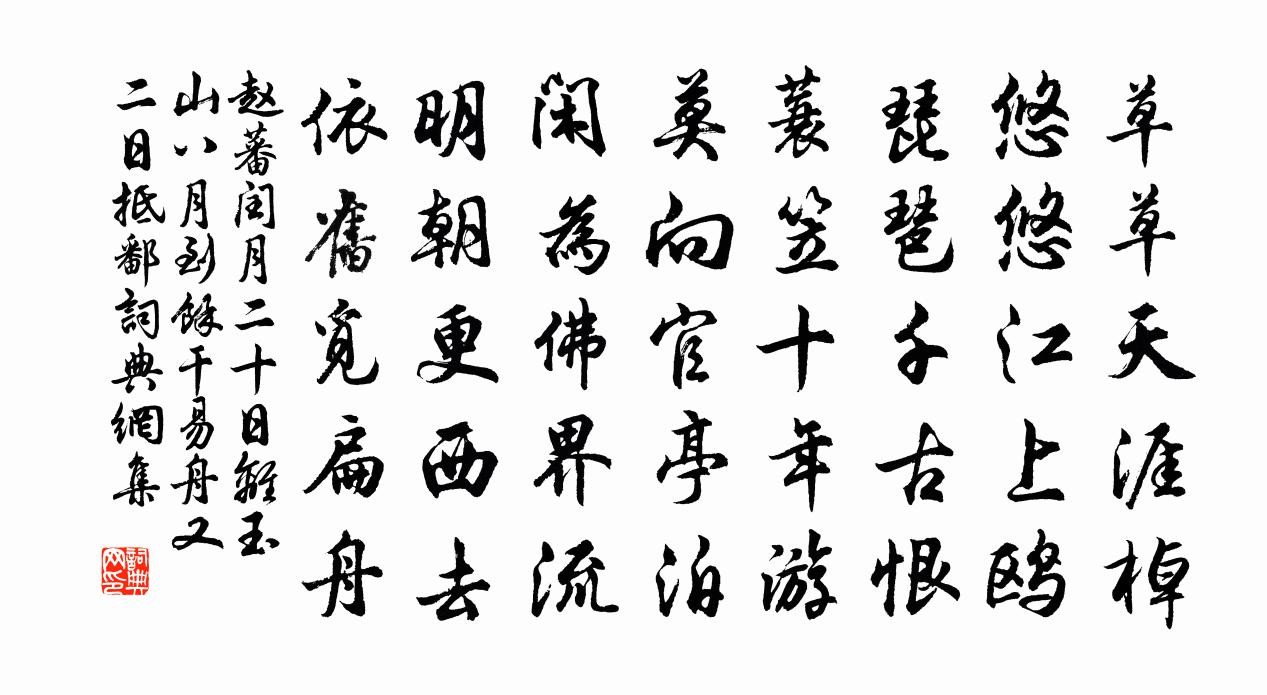 草草天涯棹
悠悠江上鸥
琵琶千古恨
蓑笠十年游
莫向官亭泊
闲為佛界流
明朝更西去
依舊覓扁舟
赵蕃闰月二十日離玉
山八月到餘干易舟又
二日抵鄱詞典網集
詞典
网印